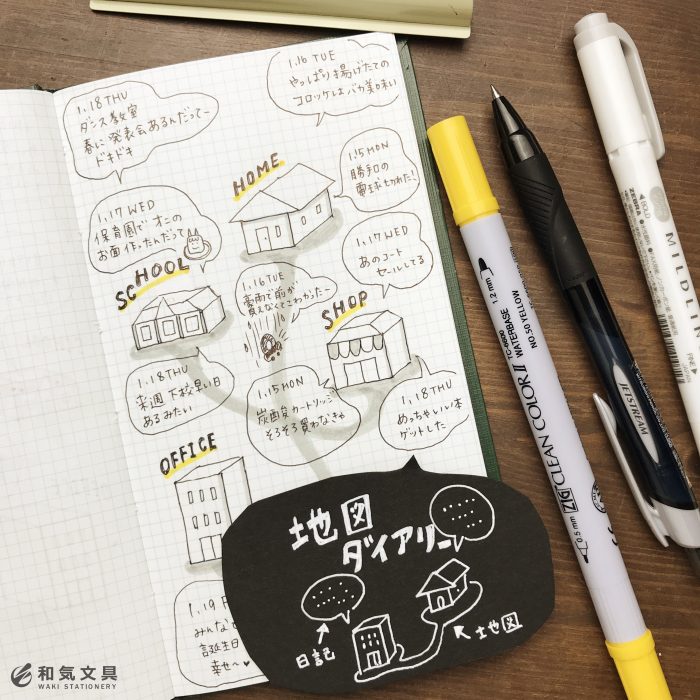 1.16 TUE
やっぱり揚げたての
コロッケはバカ美味い
1.18 THU
ダンス教室
春に発表会あるんだってー
ドキドキ
HOME
1.15 MON
勝手口の
電球切れた!
1.17 WED
保育園でオニの
お面作ったんだって
1.17 WED
あのコート
セールしてる
SCHOOL
1.16 TUE
豪雨で前が
見えなくてこわかったー
SHOP
1.18 THU
来週下校早い日
あるみたい
1.15 MON
炭酸カートリッジ
そろそろ買わなきゃ
1.18 THU
めっちゃいい本
ゲットした
OFFICE
1.19
みんなで
誕生日
幸せ〜♥
地図
ダイアリー
日記
地図
ZIG CLEAN COLOR II
TC-6600
WATERBASE
NO.50 YELLOW
1.2 mm
0.5 mm
JETSTREAM
BOLD
MILDLIN
和気文具
WAKI STATIONERY